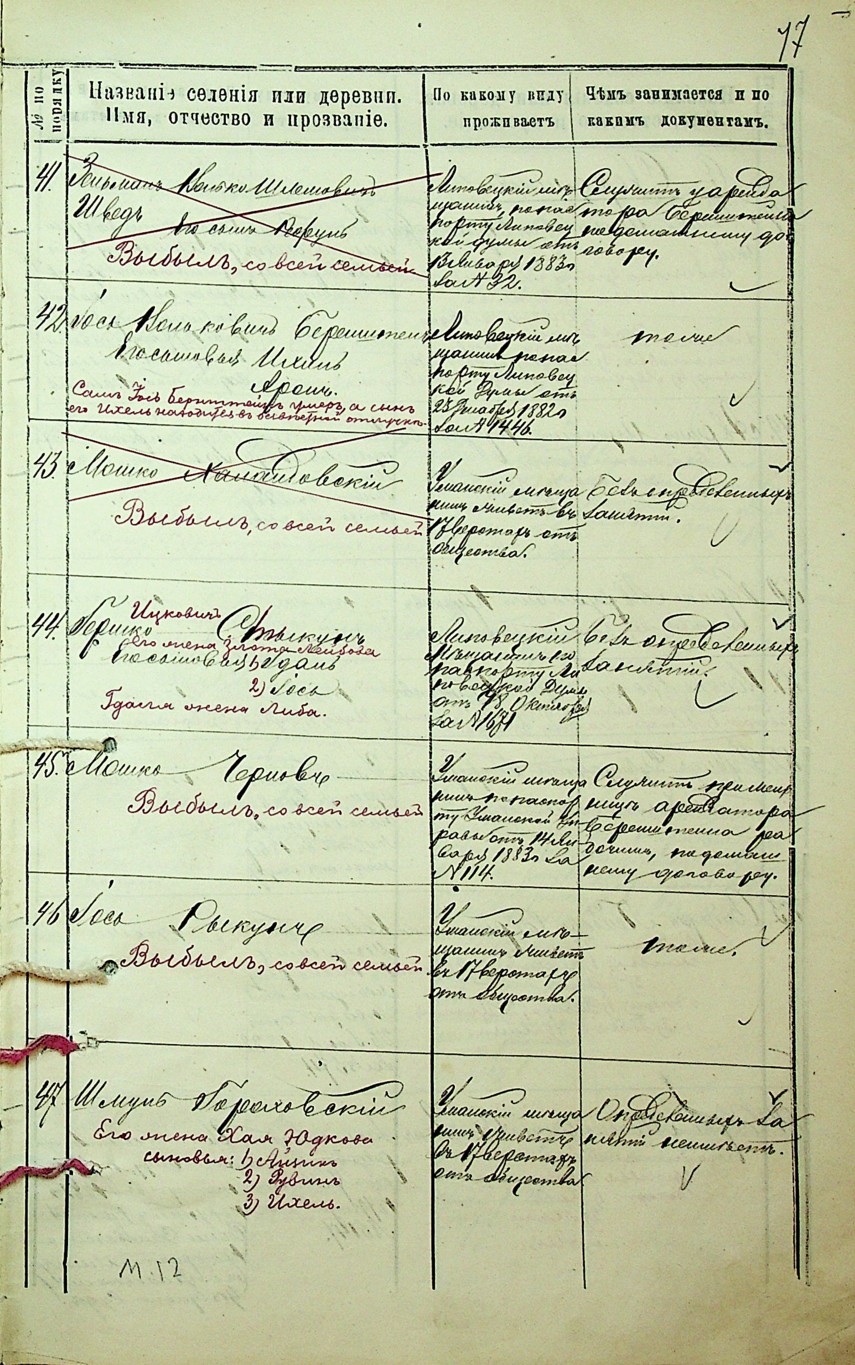 17
№ по порядку
Названіе селенія или деревни.
Имя, отчество и прозваніе.
По какому виду
проживаетъ
Чѣмъ занимается и по
какимъ документамъ.
41.
Волько Шлемовичъ
Шведъ Его сынъ
Выбылъ, со всей семьей
Липовецкій мѣ-
щанинъ, по пас
порту Липовец
кой думы отъ
13 Января 1883 г
за № 32.
Служитъ у аренда
тора Бернштейна
по домашнему до-
говору.
42.
Іось Вольковичъ Бернштейнъ
Его сыновья Ихиль
Аронъ.
Самъ Іось Бернштейнъ умеръ, а сынъ
его Ихель находится въ безвѣстной отлучкѣ.
Липовецкій мѣ
щанинъ по пас
порту Липовец
кой Думы отъ
23 Декабря 1882 г
за № 1446.
тоже
43.
Мошко
Выбылъ, со всей семьей
Уманскій мѣща
нинъ живетъ въ
17 верстахъ отъ
общества.
Безъ опредѣленныхъ
занятій.
44.
Ицковичъ
Гершко
Его жена Злота Лейбова
Его сыновья 1) Гдаль
2) Іось
Гдалля жена Либа.
Липовецкій
Мѣщанинъ по
паспорту Ли
повецкой Думы
отъ 18 Октября
за № 1671
Безъ опредѣленныхъ
занятій.
45.
Мошко
Выбылъ, со всей семьей
Уманскій мѣща
нинъ по паспор
ту Уманской Уп
равы отъ 14 Ян
варя 1883 г за
№ 114.
Служитъ при мель
ницѣ арендатора
Бернштейна ра
бочимъ, по домаш
нему договору.
46
Іось Рыкунъ
Выбылъ, со всей семьей.
Уманскій мѣ-
щанинъ живетъ
въ 17 верстахъ
отъ общества.
тоже.
47
Шмуль Гороховскій
Его жена Хая Юдкова
сыновья: 1) Айзикъ
2) Рувинъ
3) Ихель.
Уманскій мѣща
нинъ живетъ
въ 17 верстахъ
отъ общества
Опредѣленныхъ за
нятій неимѣетъ.
М. 12